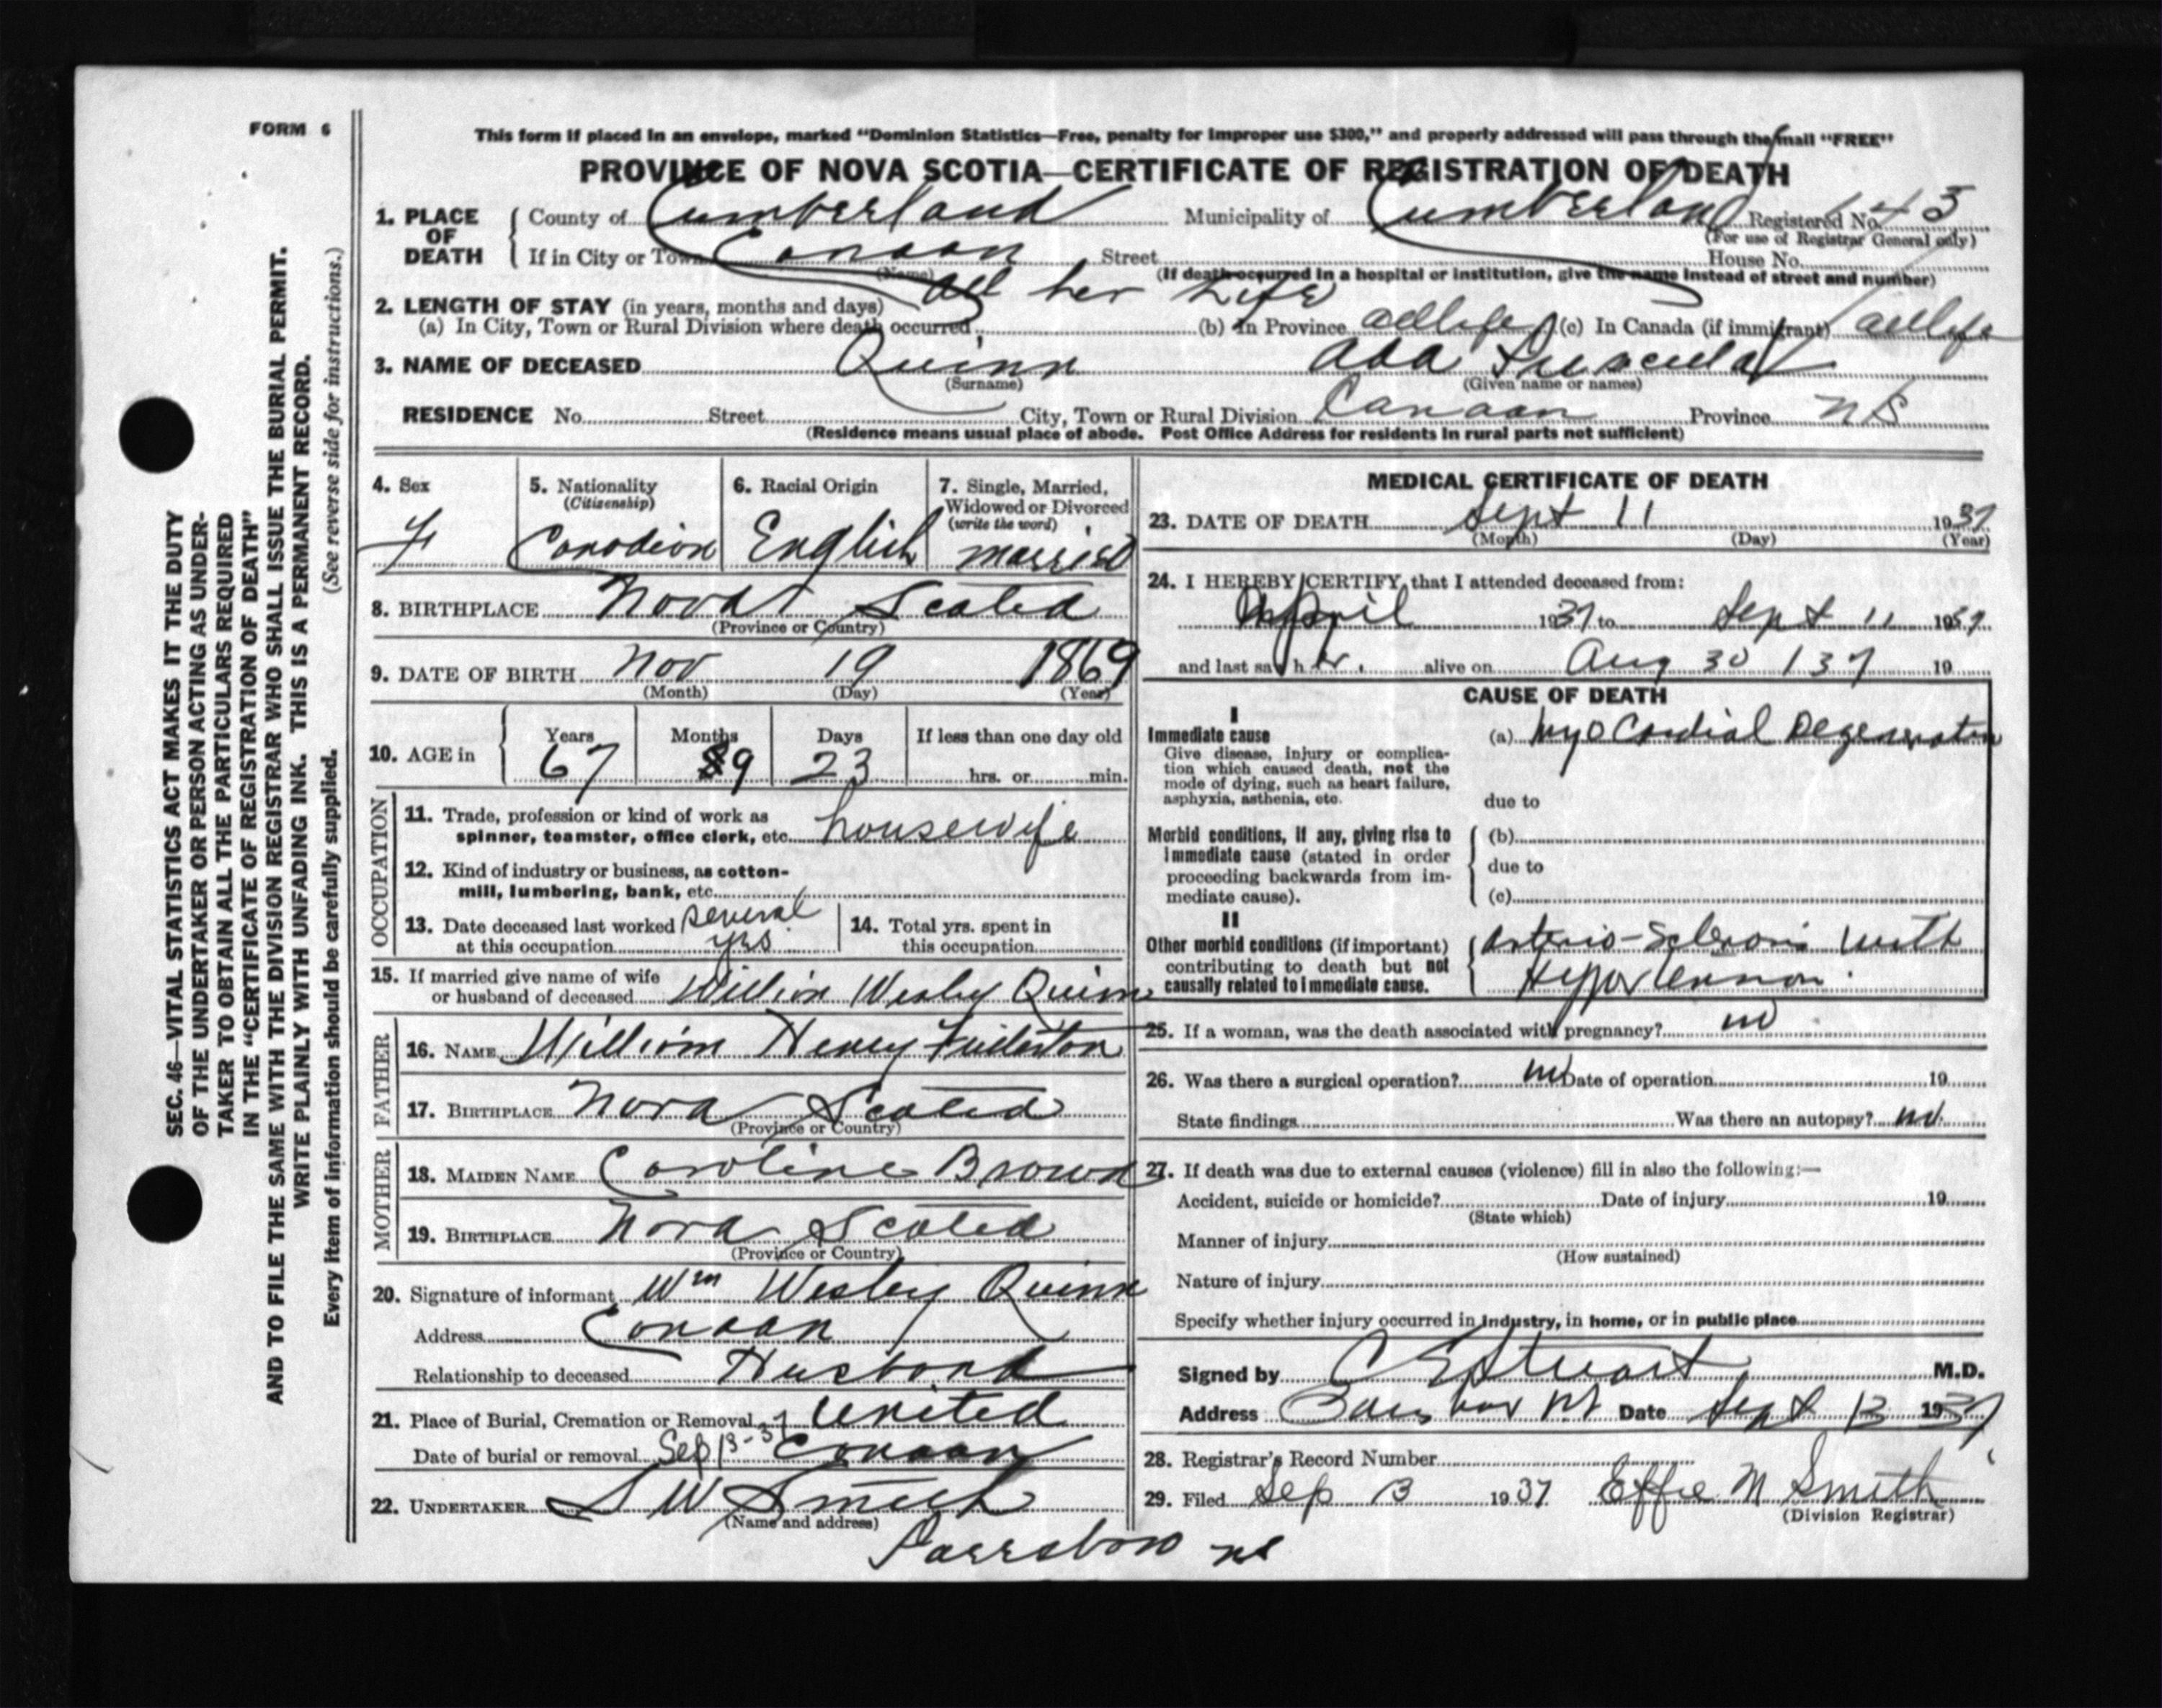 FORM 6
SEC. 46—VITAL STATISTICS ACT MAKES IT THE DUTY
OF THE UNDERTAKER OR PERSON ACTING AS UNDER-
TAKER TO OBTAIN ALL THE PARTICULARS REQUIRED
IN THE "CERTIFICATE OF REGISTRATION OF DEATH"
AND TO FILE THE SAME WITH THE DIVISION REGISTRAR WHO SHALL ISSUE THE BURIAL PERMIT.
WRITE PLAINLY WITH UNFADING INK. THIS IS A PERMANENT RECORD.
Every item of information should be carefully supplied. (See reverse side for instructions.)
This form if placed in an envelope, marked "Dominion Statistics—Free, penalty for improper use $300," and properly addressed will pass through the mail "FREE"
PROVINCE OF NOVA SCOTIA—CERTIFICATE OF REGISTRATION OF DEATH
1. PLACE OF DEATH County of Cumberland Municipality of Cumberland Registered No. 143
(For use of Registrar General only)
If in City or Town Canaan Street House No.
(Name) (If death occurred in a hospital or institution, give the name instead of street and number)
2. LENGTH OF STAY (in years, months and days) all her Life
(a) In City, Town or Rural Division where death occurred (b) In Province all life (c) In Canada (if immigrant) all life
3. NAME OF DECEASED Quinn Ada
(Surname) (Given name or names)
RESIDENCE No. Street City, Town or Rural Division Canaan Province NS
(Residence means usual place of abode. Post Office Address for residents in rural parts not sufficient)
4. Sex F
5. Nationality (Citizenship) Canadian
6. Racial Origin English
7. Single, Married, Widowed or Divorced (write the word) married
8. BIRTHPLACE Nova Scotia
(Province or Country)
9. DATE OF BIRTH Nov 19 1869
(Month) (Day) (Year)
10. AGE in Years 67 Months 9 Days 23 If less than one day old hrs. or min.
OCCUPATION
11. Trade, profession or kind of work as
spinner, teamster, office clerk, etc. housewife
12. Kind of industry or business, as cotton-
mill, lumbering, bank, etc.
13. Date deceased last worked at this occupation several yrs
14. Total yrs. spent in this occupation
15. If married give name of wife
or husband of deceased William Wesley Quinn
FATHER
16. NAME William Henry Fullerton
17. BIRTHPLACE Nova Scotia
(Province or Country)
MOTHER
18. MAIDEN NAME Caroline Brown
19. BIRTHPLACE Nova Scotia
(Province or Country)
20. Signature of informant Wm Wesley Quinn
Address Canaan
Relationship to deceased Husband
21. Place of Burial, Cremation or Removal United
Date of burial or removal Sep 13-37 Canaan
22. UNDERTAKER S W Smith
(Name and address)
Parrsboro NS
MEDICAL CERTIFICATE OF DEATH
23. DATE OF DEATH Sept 11 1937
(Month) (Day) (Year)
24. I HEREBY CERTIFY that I attended deceased from:
April 1937 to Sept 11 1937
and last saw her alive on Aug 30 137 19
CAUSE OF DEATH
I
Immediate cause (a) Myo Cardial Degeneration
Give disease, injury or complica-
tion which caused death, not the
mode of dying, such as heart failure,
asphyxia, asthenia, etc.
due to
Morbid conditions, if any, giving rise to (b)
immediate cause (stated in order
due to
proceeding backwards from im-
mediate cause). (c)
II
Other morbid conditions (if important) Arterio-Sclerosis with
contributing to death but not
causally related to immediate cause. Hypertension.
25. If a woman, was the death associated with pregnancy? no
26. Was there a surgical operation? no Date of operation 19
State findings Was there an autopsy? no
27. If death was due to external causes (violence) fill in also the following:—
Accident, suicide or homicide? Date of injury 19
(State which)
Manner of injury
(How sustained)
Nature of injury
Specify whether injury occurred in industry, in home, or in public place
Signed by C E Stuart M.D.
Address NS Date Sept 13 1937
28. Registrar's Record Number
29. Filed Sep 13 1937 Effie M Smith
(Division Registrar)